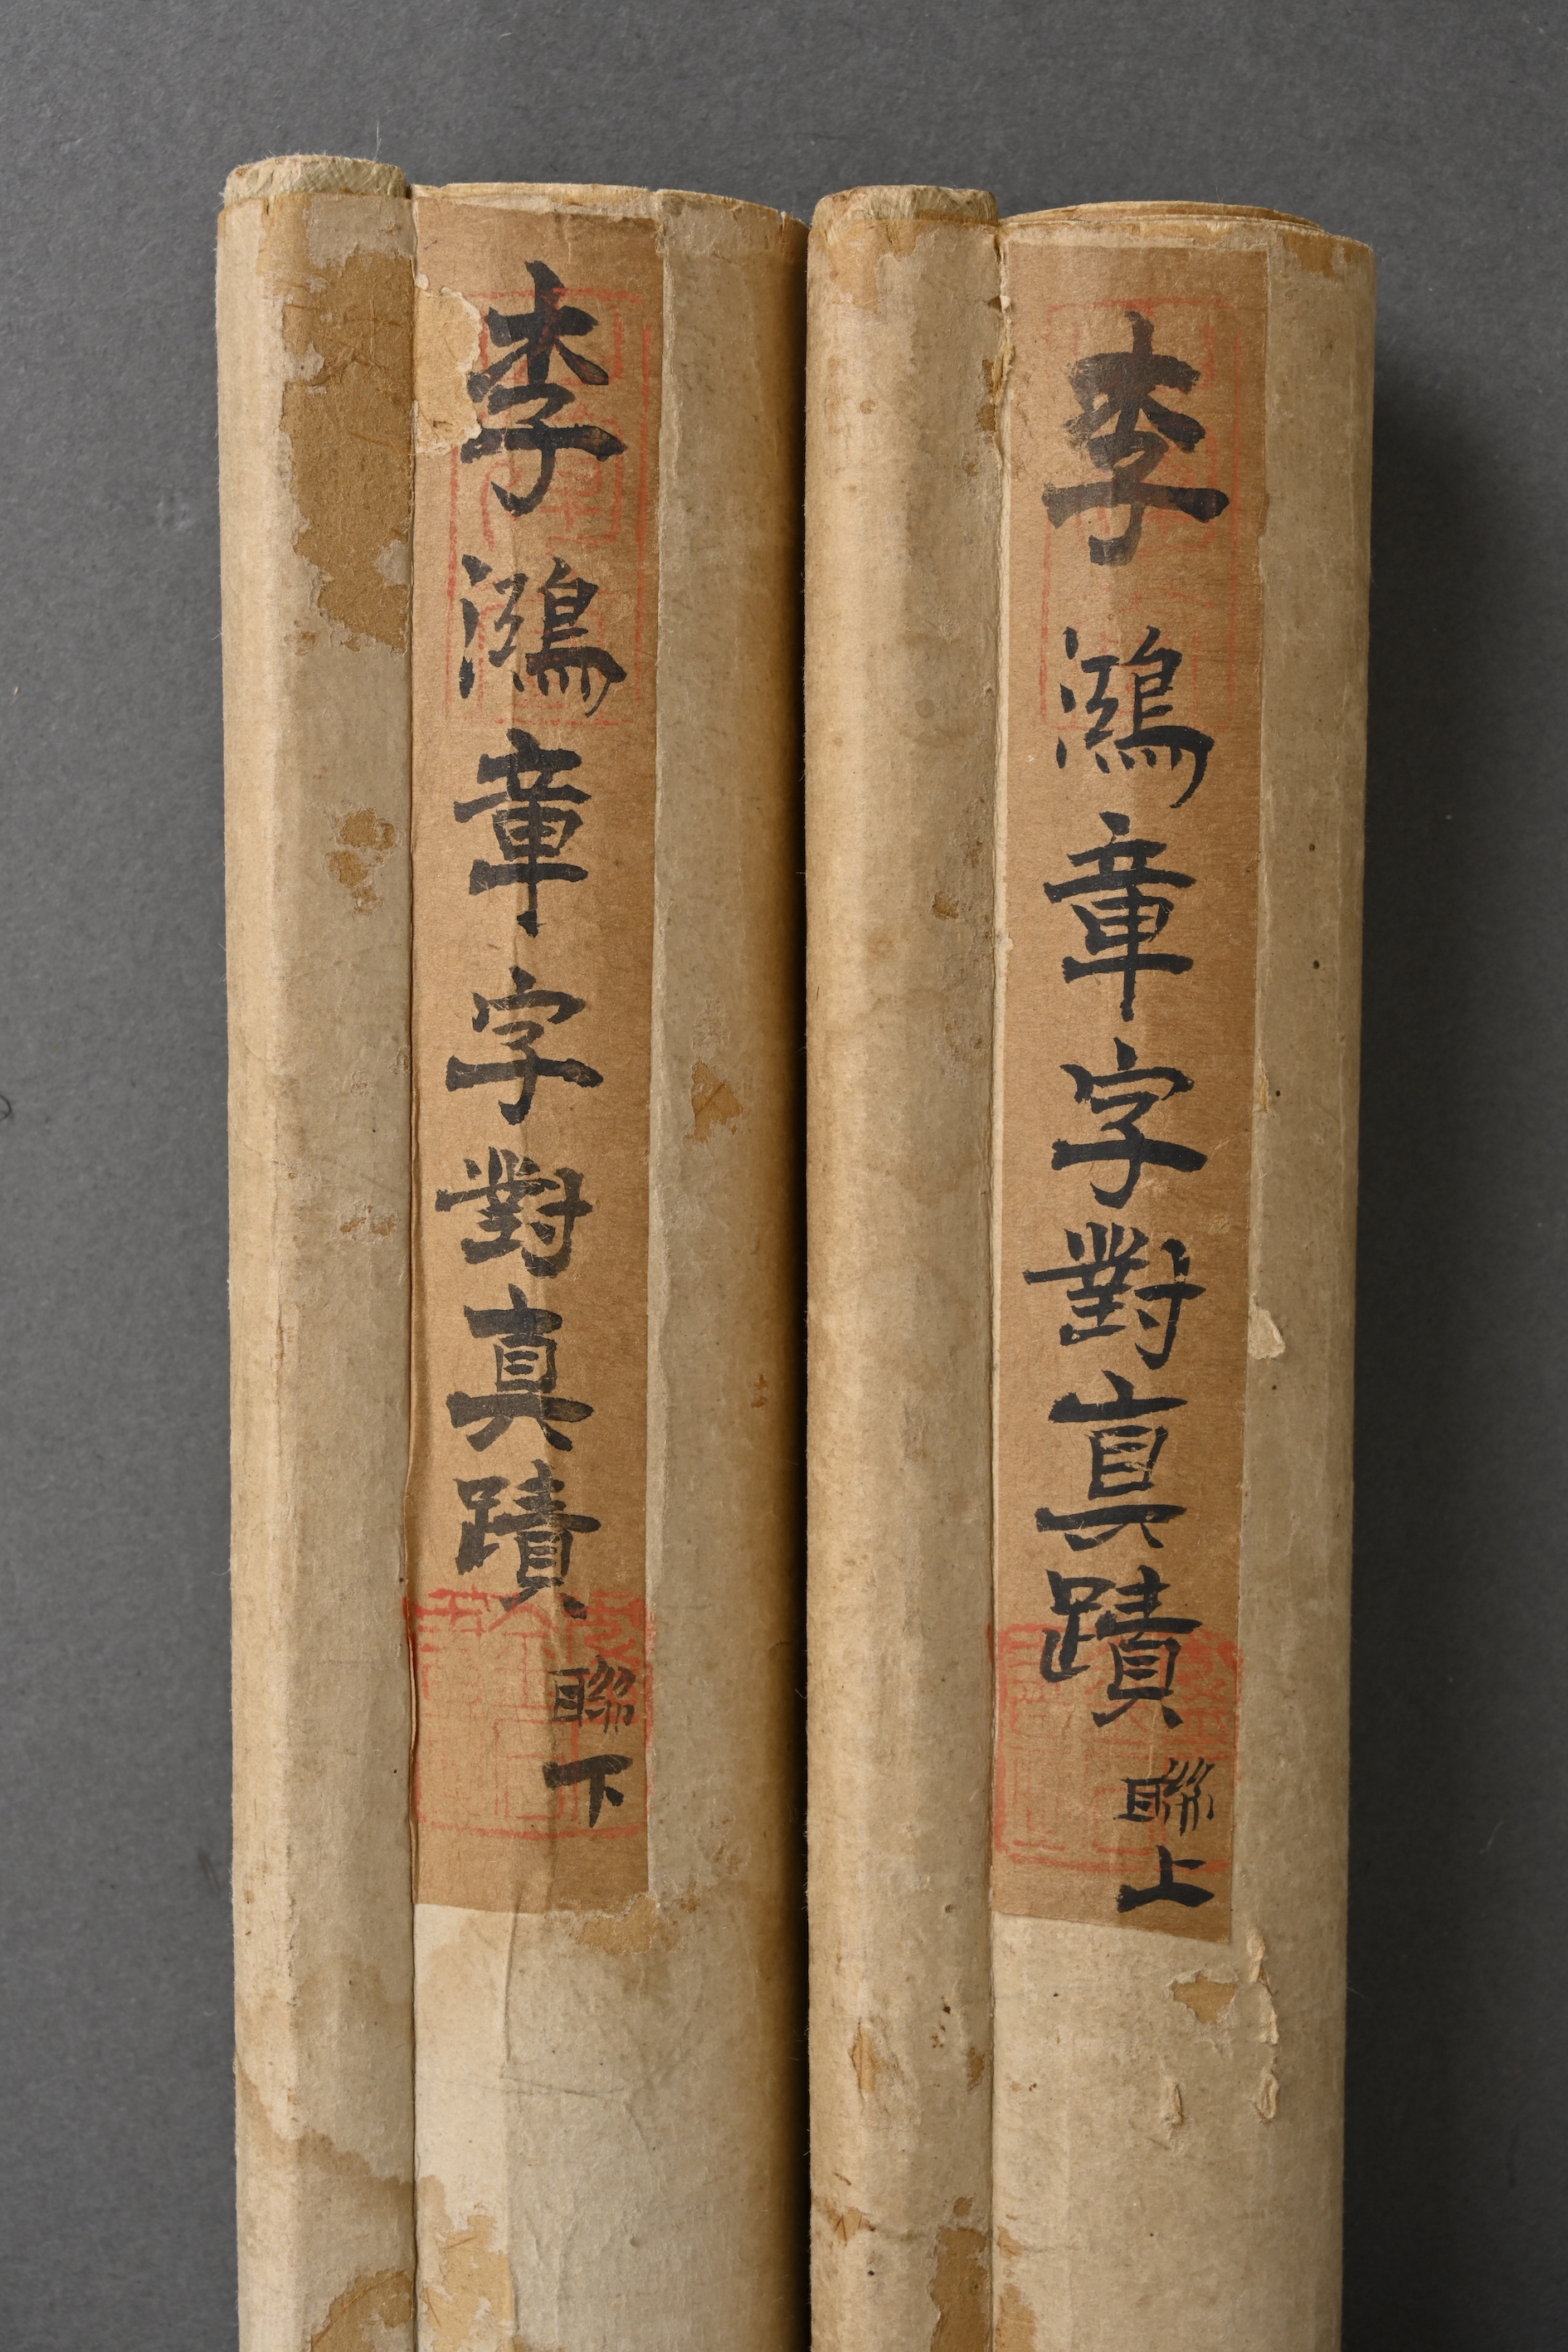 李鴻章字對真蹟 聯上
李鴻章字對真蹟 聯下